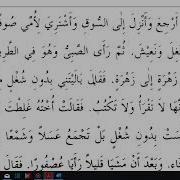 أَرْجِعَ وَأَنْزِلَ إِلَى السُّوقِ وَأَشْتَرِيَ لِأُمِّي صُوفًا
وَنَعِيشُ، ثُمَّ رَأَى الصَّبِيُّ وَهُوَ فِي الطَّرِيقِ
زَهْرَةٍ إِلَى زَهْرَةٍ. فَقَالَ يَالَيْتَنِي بِدُونِ شُغْلٍ
لَا تَقْرَأُ وَلَا تَكْتُبُ. فَقَالَتْ أُخْتُهُ غَلِطْتَ
لَيْسَتْ بِدُونِ شُغْلٍ بَلْ تَجْمَعُ عَسَلًا وَشَمْعًا
وَبَعْدَ أَنْ مَشَيَا قَلِيلًا رَأَيَا عُصْفُورًا. فَقَالَ